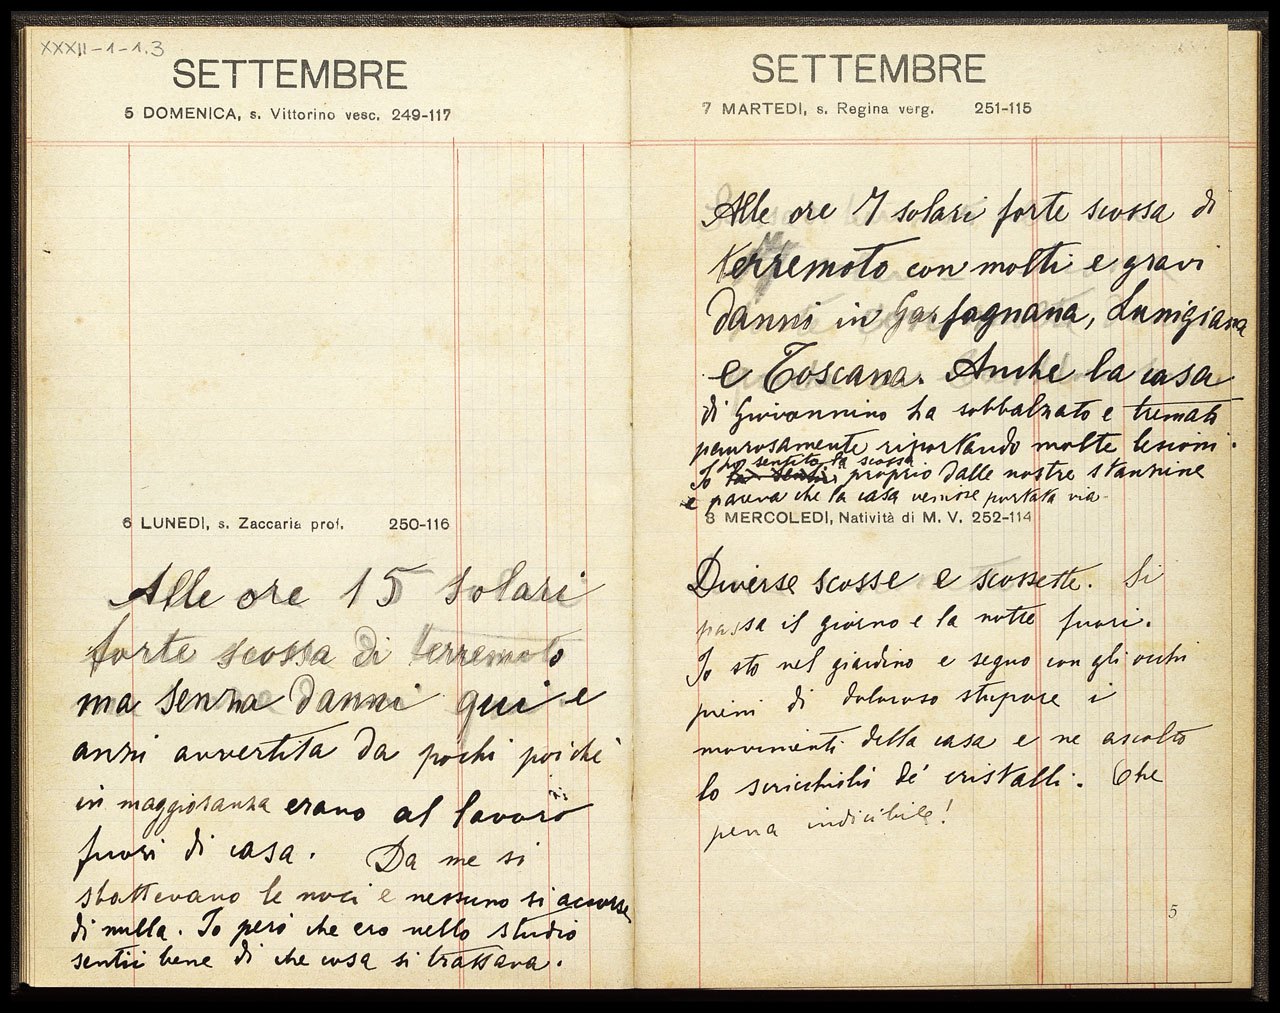 XXXII-1-1.3
SETTEMBRE
5 DOMENICA, s. Vittorino vesc. 249-117
6 LUNEDI, s. Zaccaria prof. 250-116
Alle ore 15 solari
forte scossa di terremoto
ma senza danni qui e
anzi avvertita da pochi poichè
in maggioranza erano al lavoro
fuori di casa. Da me si
sbattevano le noci e nessuno si accorse
di nulla. Io però che ero nello studio
sentii bene di che cosa si trattava.
SETTEMBRE
7 MARTEDI, s. Regina verg. 251-115
Alle ore 7 solari forte scossa di
terremoto con molti e gravi
danni in Garfagnana, Lunigiana
e Toscana. Anche la casa
di Giovannino ha sobbalzato e tremato
paurosamente riportando molte lesioni.
ho sentito la scossa
Io proprio dalle nostre stanzine
e pareva che la casa venisse portata via
8 MERCOLEDI, Natività di M. V. 252-114
Diverse scosse e scossette. Si
passa il giorno e la notte fuori.
Io sto nel giardino e seguo con gli occhi
pieni di doloroso stupore i
movimenti della casa e ne ascolto
lo scricchiolii de' cristalli. Che
pena indicibile!
5